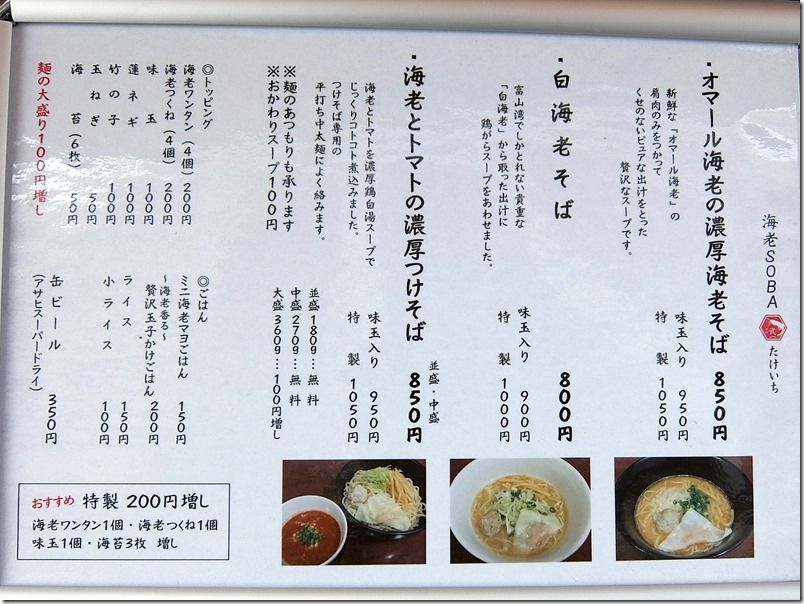 海老SOBA たけいち
・オマール海老の濃厚海老そば 850円
新鮮な「オマール海老」の
肩肉のみをつかって
くせのないピュアな出汁をとった
贅沢なスープです。
味玉入り 950円
特製 1050円
・白海老そば 800円
富山湾でしかとれない貴重な
「白海老」から取った出汁に
鶏がらスープをあわせました。
味玉入り 900円
特製 1000円
・海老とトマトの濃厚つけそば 850円
並盛・中盛
海老とトマトを濃厚鶏白湯スープで
じっくりコトコト煮込みました。
つけそば専用の
平打ち中太麺によく絡みます。
味玉入り 950円
特製 1050円
※麺のあつもりも承ります
※おかわりスープ100円
並盛180g…無料
中盛270g…無料
大盛360g…100円増し
◎トッピング
海老ワンタン(4個) 200円
海老つくね(4個) 200円
味玉 100円
蓮ネギ 100円
竹の子 100円
玉ねぎ 50円
海苔(6枚) 50円
麺の大盛り100円増し
◎ごはん
ミニ海老マヨごはん 150円
~海老香る~
贅沢玉子かけごはん 200円
ライス 150円
小ライス 100円
缶ビール 350円
(アサヒスーパードライ)
おすすめ 特製 200円増し
海老ワンタン1個・海老つくね1個
味玉1個・海苔3枚 増し